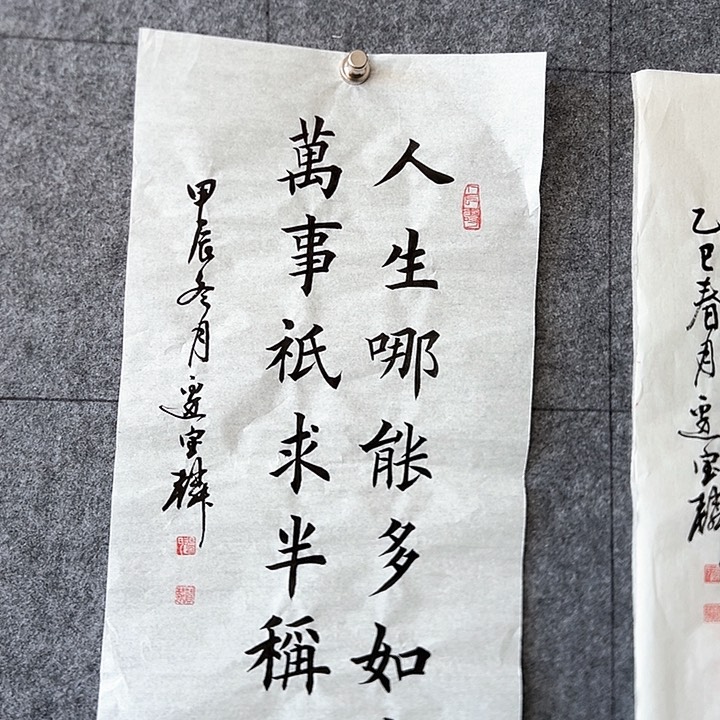 人生哪能多如
萬事祇求半稱
甲辰冬月邊宝麟
乙巳春月邊宝麟